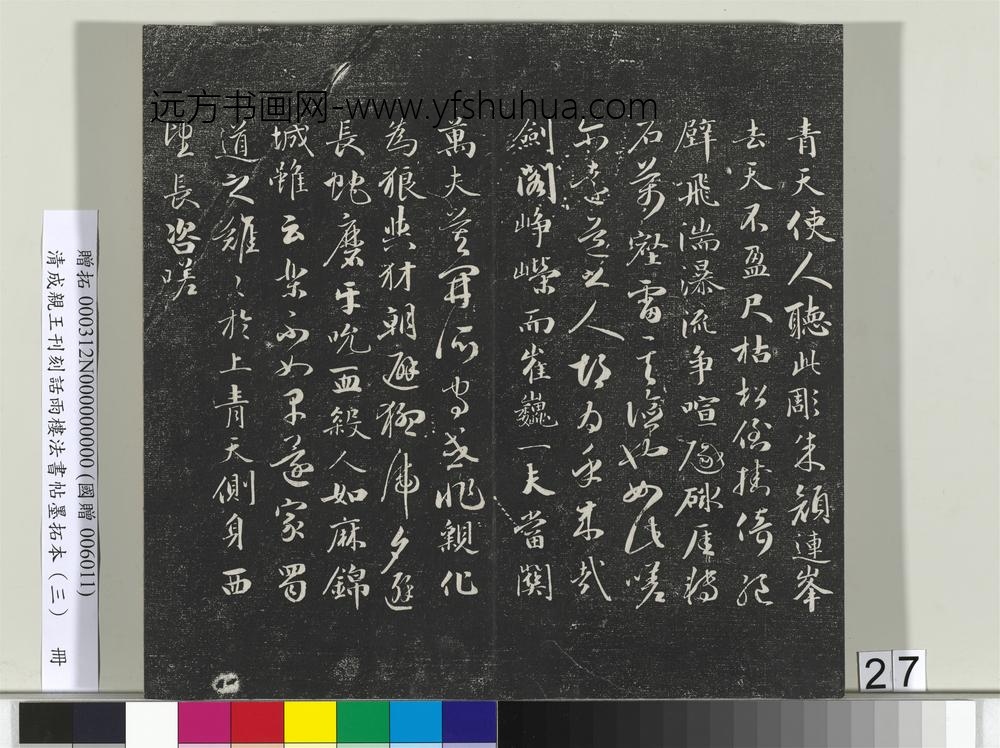 远方书画网-www.yfshuhua.com
青天使人聽此彫朱顏連峯
去天不盈尺枯松倒掛倚絕
壁飛湍瀑流争喧豗砯厓轉
石萬壑雷其險也如此嗟
尔遠道之人胡为乎来哉
劍閣崢嶸而崔巍一夫當関
萬夫莫開所守或非親化
為狼與豺朝避猛虎夕避
長虵磨牙吮血殺人如麻錦
城雖云樂不如早還家蜀
道之難〻於上青天側身西
望長咨嗟
贈拓 000312N000000000 (國贈 006011)
清成親王刊刻話雨樓法書帖墨拓本（三） 冊
27